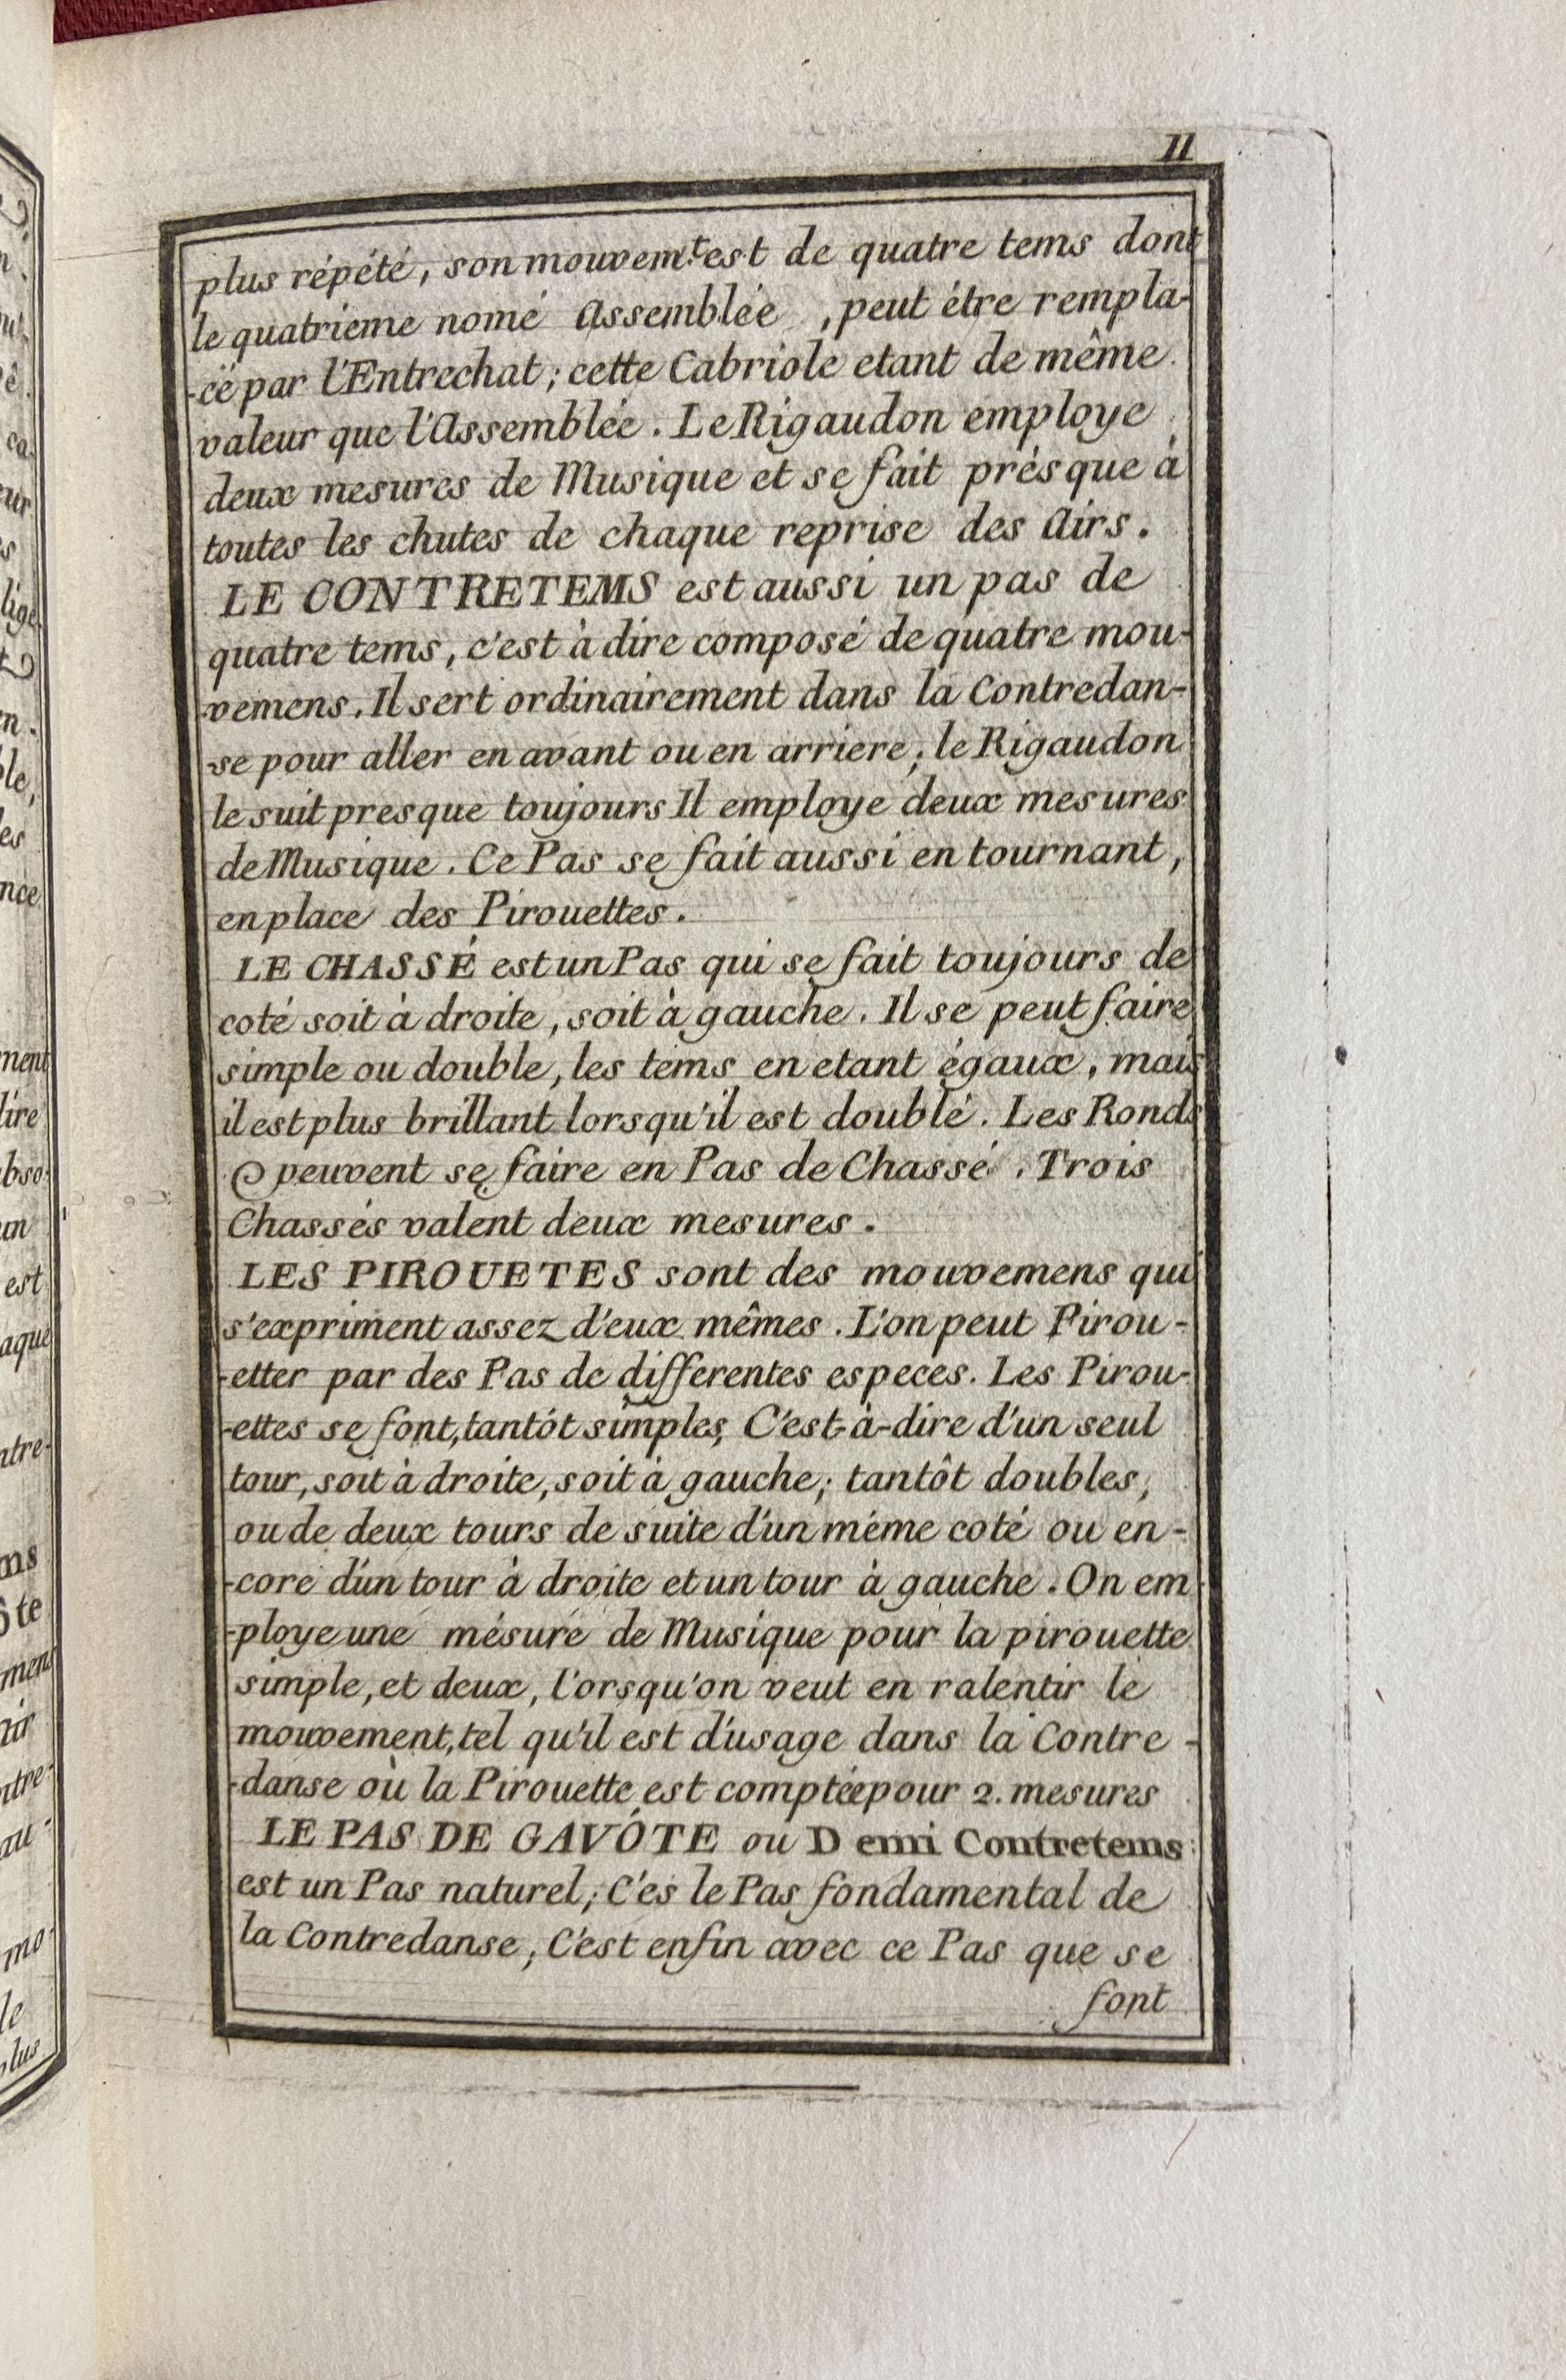 II
plus répété, son mouvem.t est de quatre tems dont
le quatrieme nomé Assemblée, peut étre rempla-
-cé par l'Entrechat; cette Cabriole etant de même
valeur que l'Assemblée. Le Rigaudon employe
deux mesures de Musique et se fait présque à
toutes les chutes de chaque reprise des Airs.
LE CONTRETEMS est aussi un pas de
quatre tems, c'est à dire composé de quatre mou-
-vemens. Il sert ordinairement dans la Contredan-
-se pour aller en avant ou en arriere; le Rigaudon
le suit presque toujours Il employe deux mesures
de Musique. Ce Pas se fait aussi en tournant,
en place des Pirouettes.
LE CHASSÉ est un Pas qui se fait toujours de
coté soit à droite, soit à gauche. Il se peut faire
simple ou double, les tems en etant égaux, mais
il est plus brillant lorsqu'il est doublé. Les Ronds
peuvent se faire en Pas de Chassé. Trois
Chassés valent deux mesures.
LES PIROUETES sont des mouvemens qui
s'expriment assez d'eux mêmes. L'on peut Pirou-
-etter par des Pas de differentes especes. Les Pirou-
-ettes se font, tantót simples, C'est-à-dire d'un seul
tour, soit à droite, soit à gauche; tantôt doubles,
ou de deux tours de suite d'un méme coté ou en-
-core d'un tour à droite et un tour à gauche. On em
-ploye une mésure de Musique pour la pirouette
simple, et deux, l'orsqu'on veut en ralentir le
mouvement, tel qu'il est d'usage dans la Contre-
-danse où la Pirouette est comptée pour 2. mesures
LE PAS DE GAVÓTE ou Demi Contretems
est un Pas naturel; C'es le Pas fondamental de
la Contredanse, C'est enfin avec ce Pas que se
font